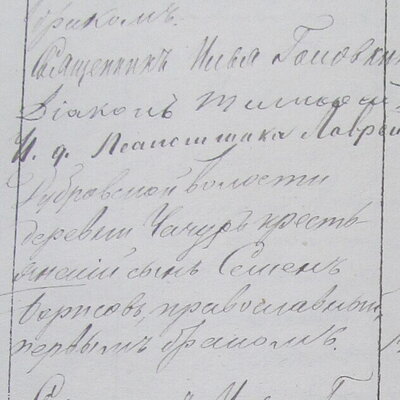 бракомъ.
Священникъ Илья Головкин
Діаконъ Тимофей
И. д. Псаломщика Лаврен
Дубровской волости
деревни Чачуръ кресть
янскій сынъ Семенъ
Борисовъ, православный,
первымъ бракомъ.